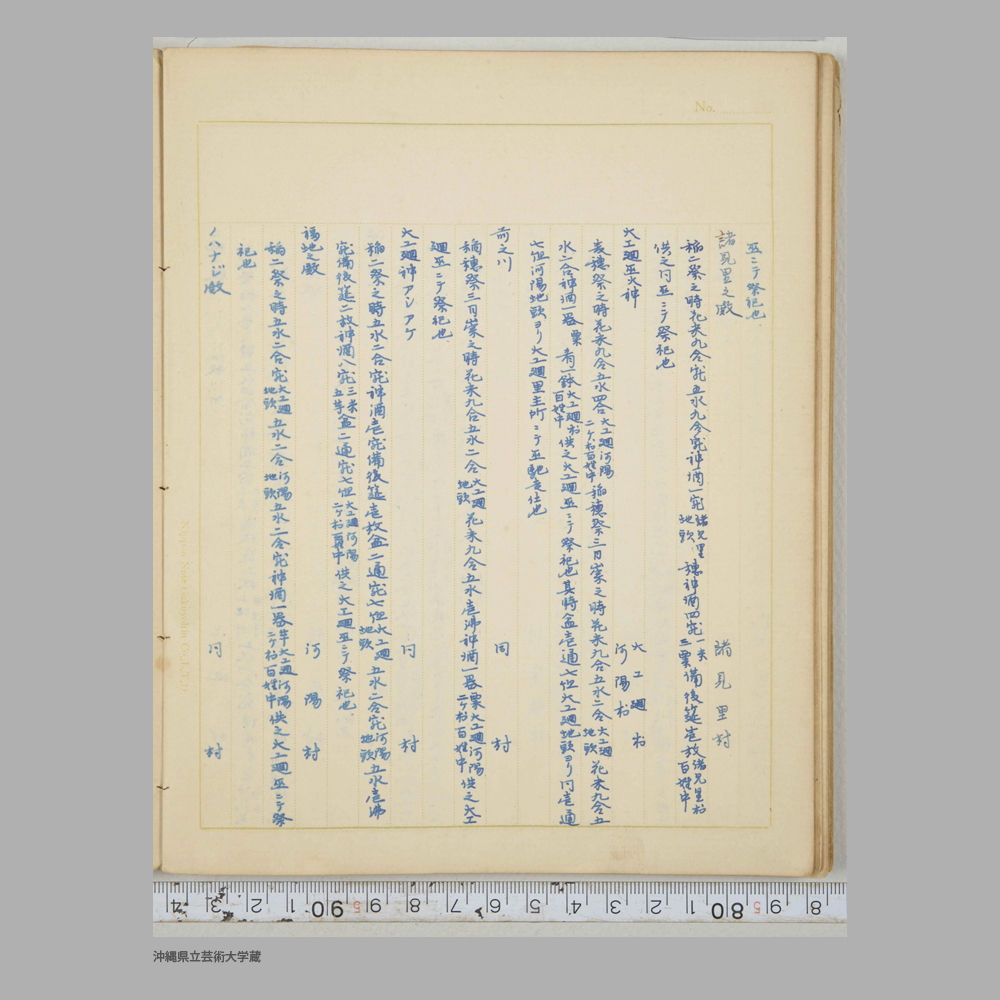 No.
巫ニテ祭祀也
諸見里之殿 諸見里村
稲二祭之時花米九合宛五水九合宛神酒一宛諸見里地頭 穂神酒四宛一米三粟備後筵壱枚諸見里村百姓中
供之同巫ニテ祭祀也
大工廻巫火神 大工廻村 河陽村
麦穂祭之時花米九合五水四合大工廻河陽二ケ村百姓中 稲穂祭三日崇之時花米九合五水二合大工廻地頭 花米九合五
水二合神酒一器粟 肴一鉢大工廻村百姓中 供之大工廻巫ニテ祭祀也其時盆壱通七組大工廻地頭ヨリ同壱通
七組河陽地頭ヨリ大工廻里主所ニテ巫馳走仕也
前之川 同村
稲穂祭三日崇之時花米九合五水二合大工廻地頭 花米九合五水壱沸神酒一器粟大工廻河陽二ケ村百姓中 供之大工
廻巫ニテ祭祀也
大工廻神アシアゲ 同村
稲二祭之時五水二合宛神酒壱宛備後筵壱枚盆二通宛七組大工廻地頭 五水二合宛河陽地頭 五水壱沸
宛備後筵二枚神酒八宛三米五芋 盆二通宛七組大工廻河陽二ケ村百姓中 供之大工廻巫ニテ祭祀也
福地之殿 河陽村
稲二祭之時五水二合宛大工廻地頭 五水二合河陽地頭 五水二合宛神酒一器芋大工廻河陽二ケ村百姓中 供之大工廻巫ニテ祭
祀也
ノハナジ殿 同村
4 3 2 1 90 9 8 7 6 5 4 3 2 1 80 9 8
沖縄県立芸術大学蔵